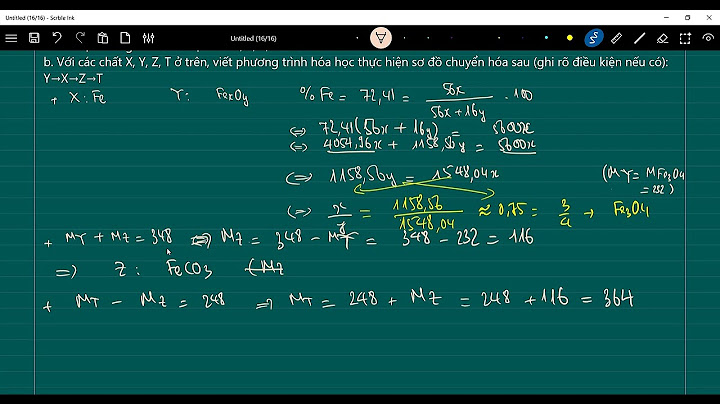 Untitled (16/16) - Scrble Ink
Untitled (16/16)
b. Với các chất X, Y, Z, T ở trên, viết phương trình hóa học thực hiện sơ đồ chuyển hóa sau (ghi rõ điều kiện nếu có):
Y→X→Z→T
+ X : Fe Y : FexOy % Fe = 72,41 = 56x / (56x + 16y) . 100
⇔ 72,41(56x + 16y) = 5600x
⇔ 4054,96x + 1158,56y = 5600x
⇔ 1158,56y = 1548,04x (MY = MFe3O4 = 232)
⇔ x/y = 1158,56 / 1548,04 ≈ 0,75 = 3/4 → Fe3O4
+ MY + MZ = 348 ⇔ MZ = 348 - MY = 348 - 232 = 116
⇒ Z : FeCO3 (MZ
+ MT - MZ = 248 ⇒ MT = 248 + MZ = 248 + 116 = 364